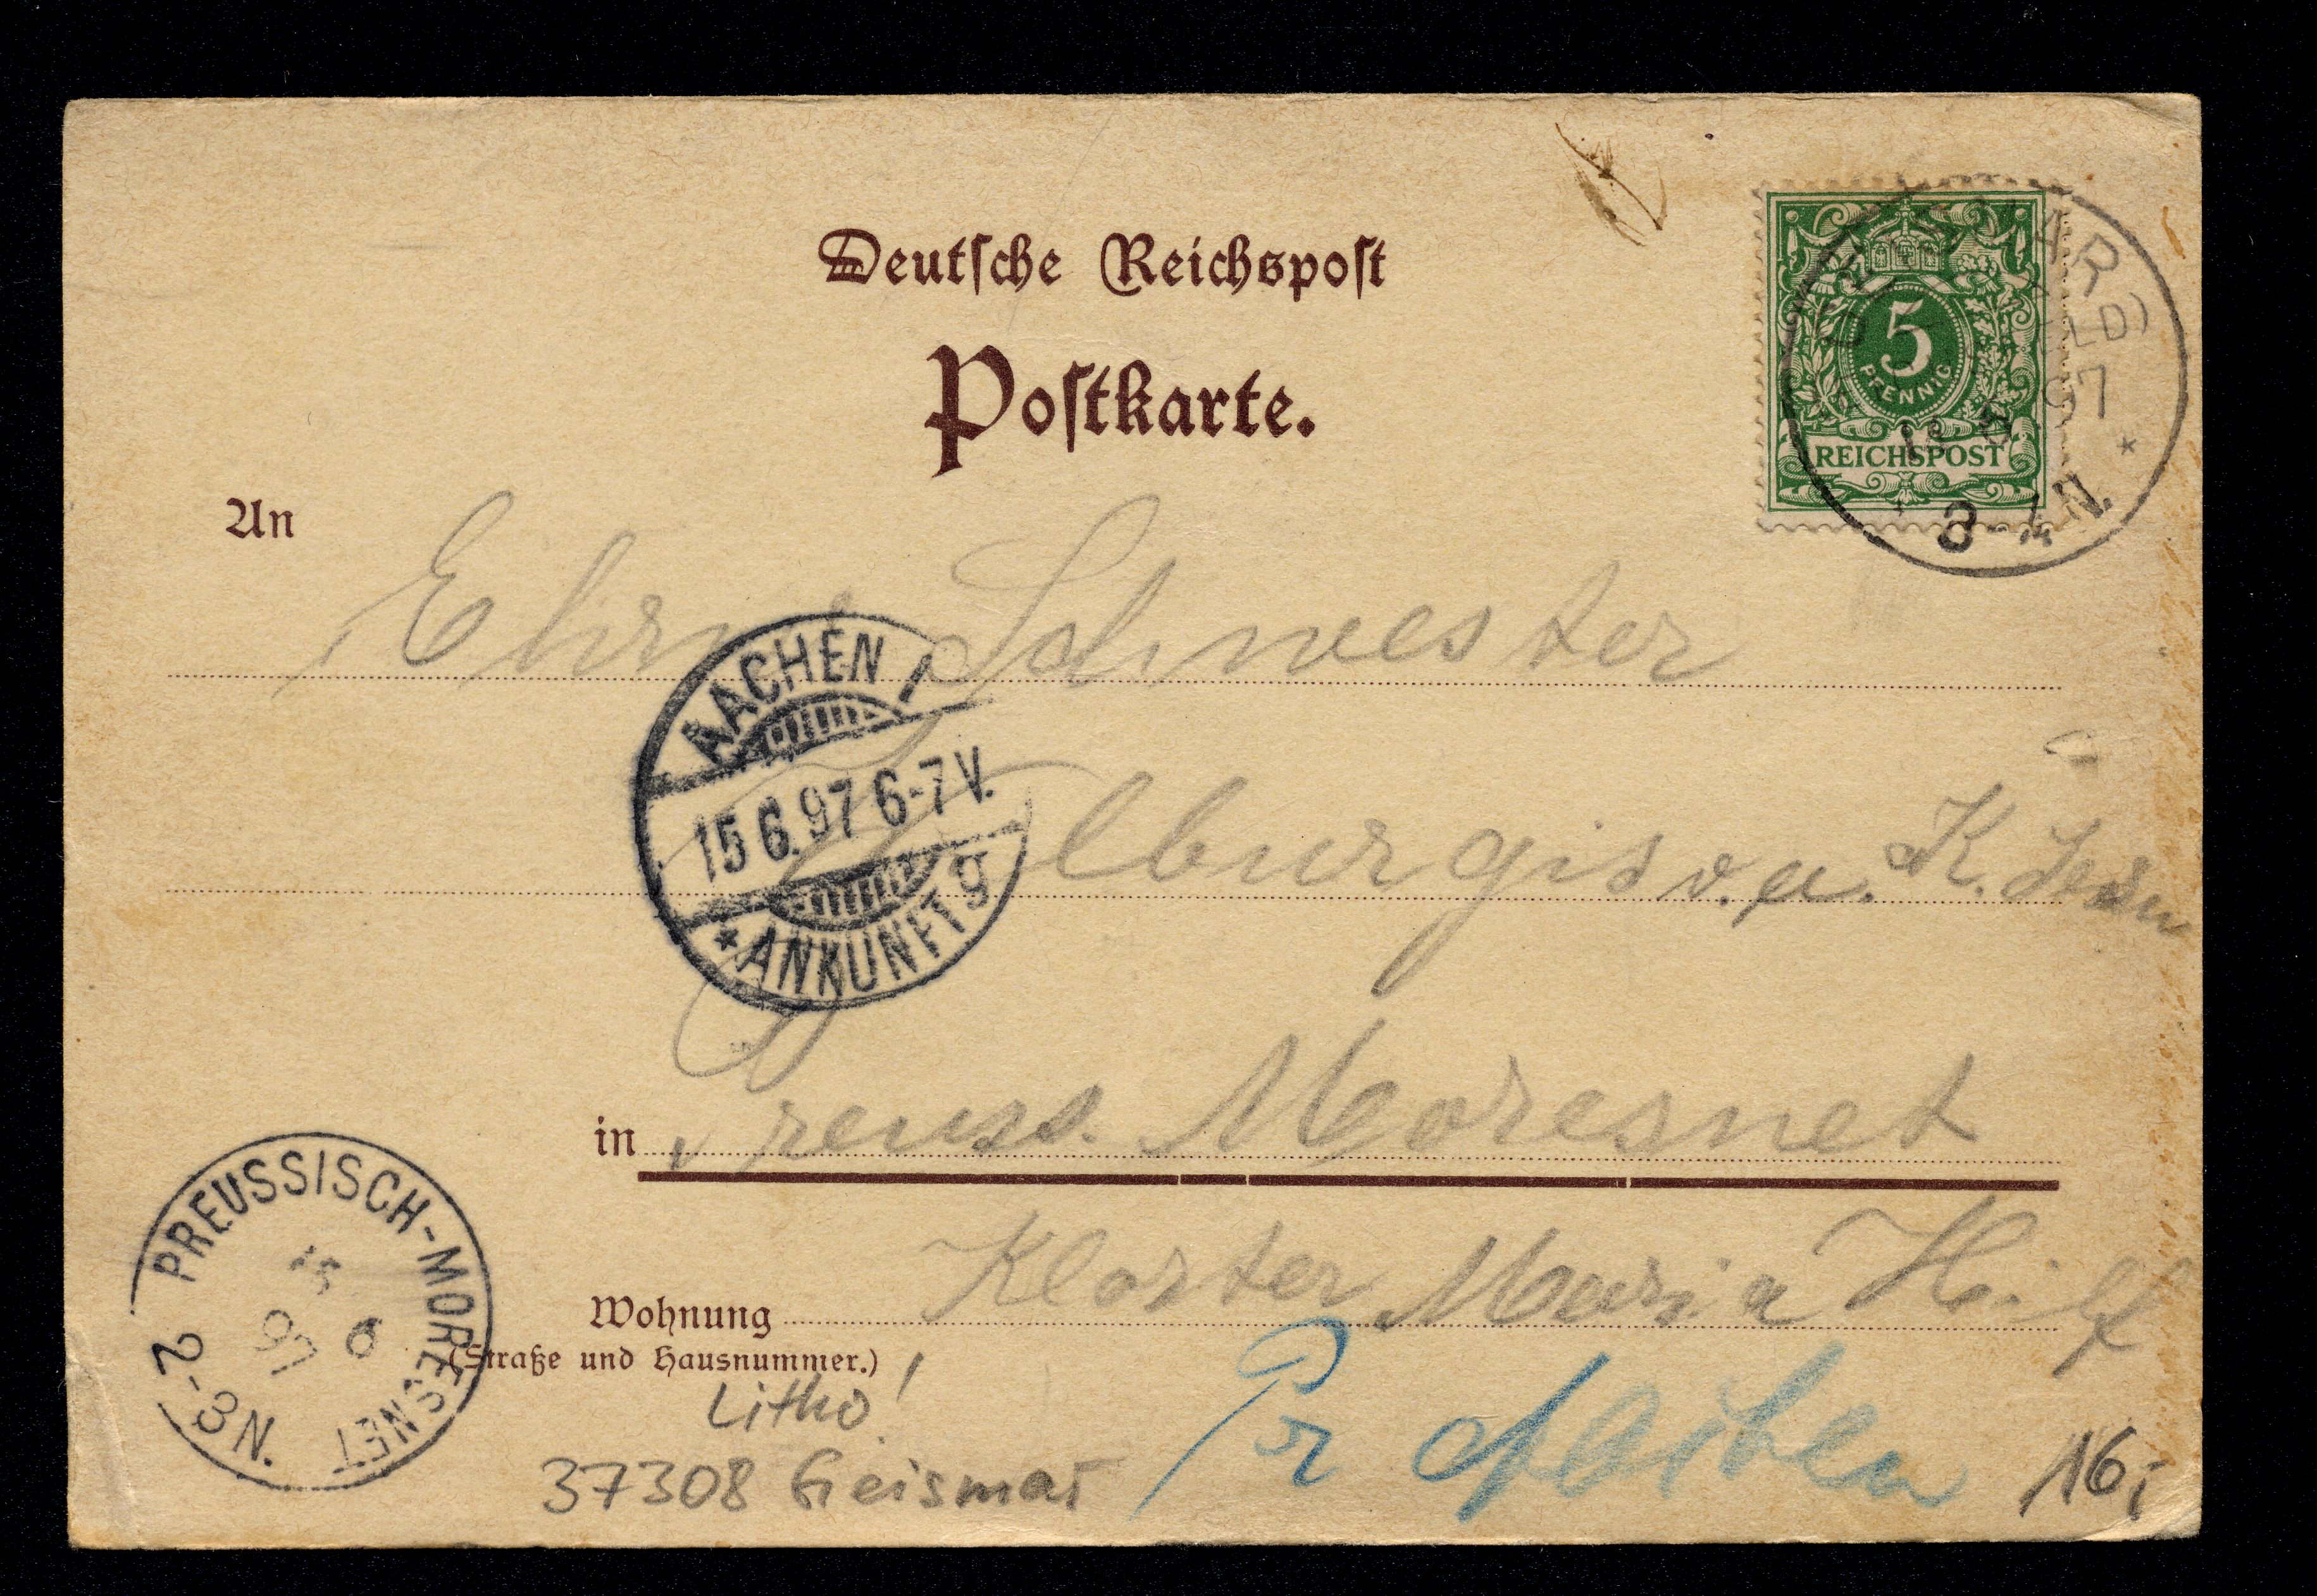 Deutsche Reichspost
Postkarte.
5
PFENNIG
REICHSPOST
97
An
Schwester
AACHEN 1
15 6. 97 6-7 V.
* ANKUNFT g
v. a. K. Jesu
in Preuss. Moresnet
PREUSSISCH-MORESNET
15
6
97
2-3 N.
Kloster Maria Hilf
Wohnung
(Straße und Hausnummer.)
Litho!
37308 Geismar
Pr Aachen